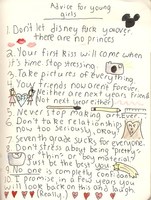 Advice for young
girls
1. Don't let disney fuck you over
there are no princes
2. Your first kiss will come when
it's time. Stop stressing.
3. Take pictures of everything.
4. Your friends now aren't forever.
neither are next years friends
or next years friends
5. Never stop making art. Ever.
6. Don't take relationships
now too seriously, okay?
7. Seventh grade sucks, for everyone.
8. Don't stress about being "pretty"
or "thin" or "b material"
Just be the best you.
9. No one is completely confident
10. I promise, in a few years you
will look back on this and laugh.
(Really.)